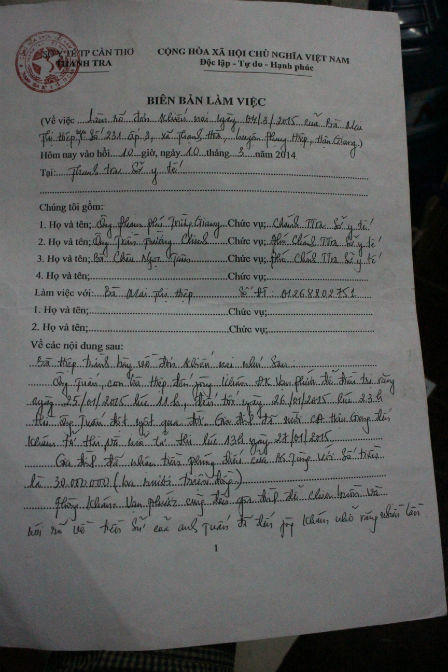 SỞ Y TẾ TP CẦN THƠ
THANH TRA
CỘNG HÒA XÃ HỘI CHỦ NGHĨA VIỆT NAM
Độc lập - Tự do - Hạnh phúc
BIÊN BẢN LÀM VIỆC
(Về việc làm rõ đơn khiếu nại ngày 04/3/2015 của Bà Mai
Thị Hiệp, số 231 ấp 3, xã Thạnh Hòa, huyện Phụng Hiệp, Hậu Giang.)
Hôm nay vào hồi 10 giờ, ngày 10 tháng 3 năm 2014
Tại: Thanh tra Sở y tế
Chúng tôi gồm:
1. Họ và tên: Ông Phạm Phú Trường Giang Chức vụ: Chánh TTra Sở y tế
2. Họ và tên: Ông Trần Trường Chinh Chức vụ: Phó Chánh TTra Sở y tế
3. Họ và tên: Bà Châu Ngọc Chức vụ: Phó Chánh TTra Sở y tế
4. Họ và tên: Chức vụ:
Làm việc với: Bà Mai Thị Hiệp Số ĐT: 01268802751
1. Họ và tên: Chức vụ:
2. Họ và tên: Chức vụ:
Về các nội dung sau:
Bà Hiệp trình bày về đơn khiếu nại như sau
Ông Tuấn, con bà Hiệp đến phòng khám ĐK Vạn Phước để điều trị răng
ngày 25/01/2015 lúc 11h, đến tối ngày 26/01/2015 lúc 23h
thì ông Tuấn đột ngột qua đời. Gia đình đã mời CA Hậu Giang đến
khám tử thi và mổ tử thi lúc 13h ngày 27/01/2015
Gia đình đã nhận tiền phúng điếu của BS Tùng với số tiền
là 30.000.000 (ba mươi triệu đồng)
Phòng khám Vạn Phước cũng đến gia đình để chia buồn và
nói rõ về tiền sử của anh Tuấn đã đến khám nhổ răng nhiều lần
1